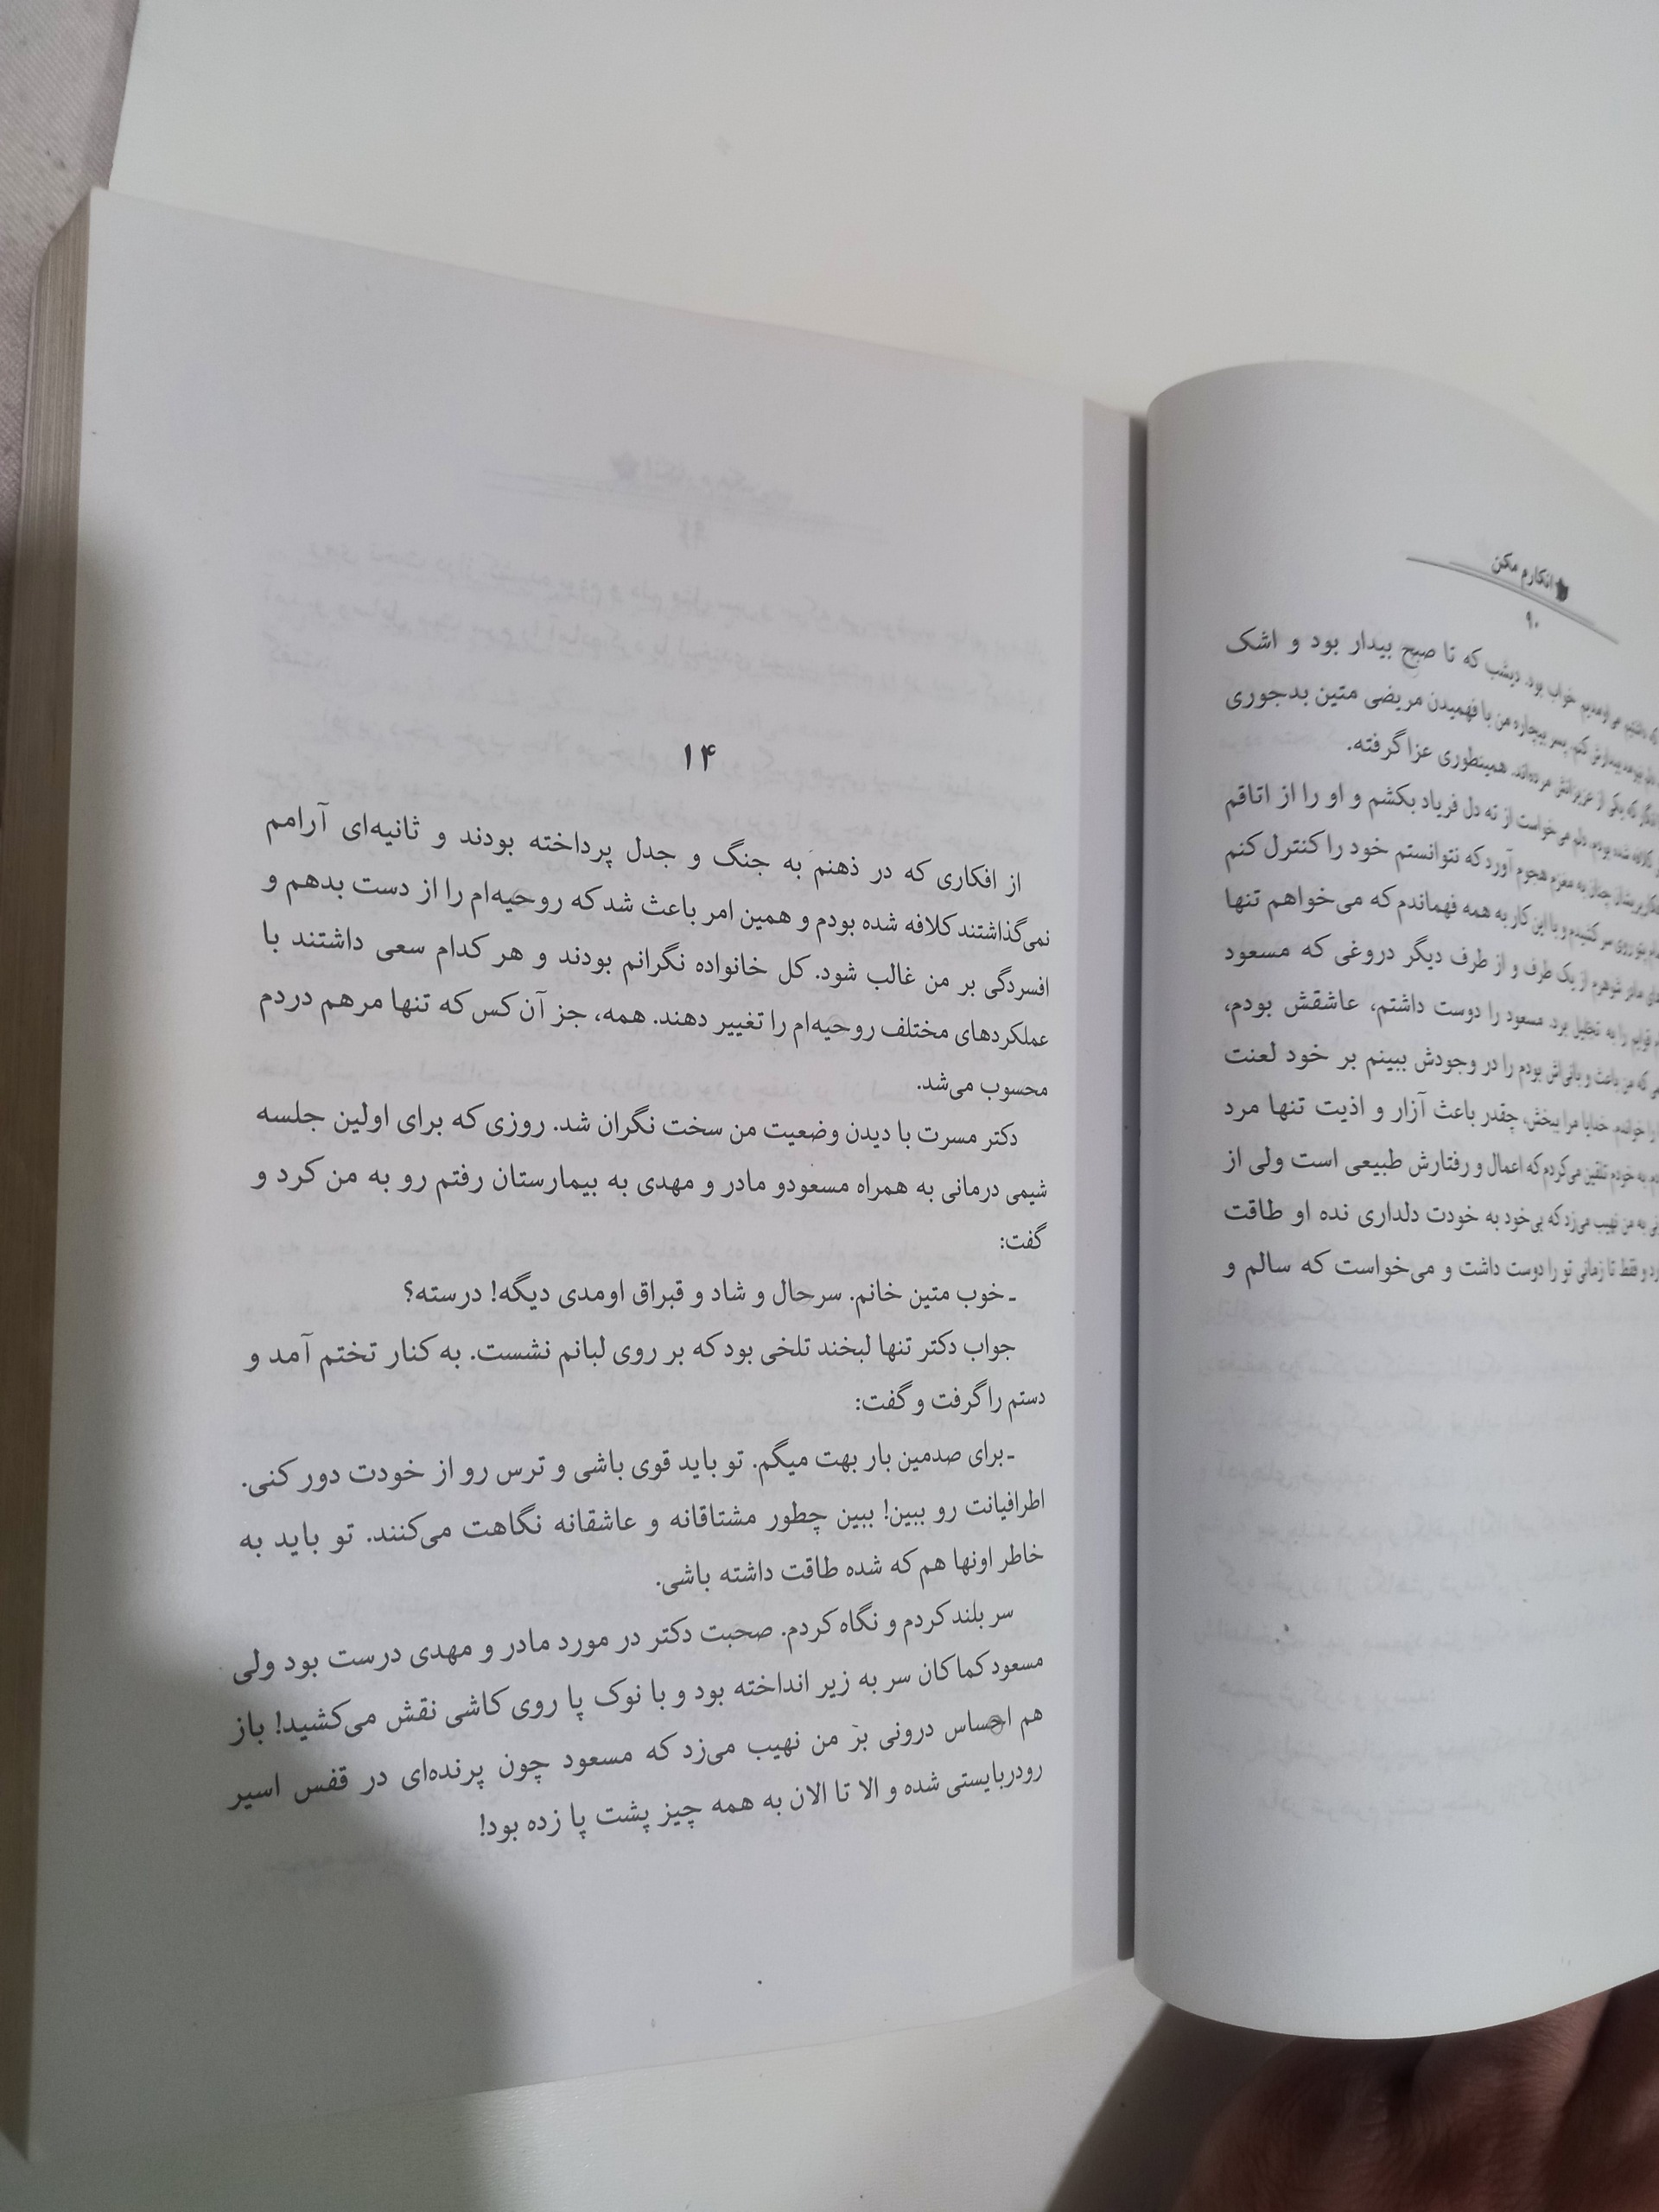 انکارم مکن
۹۰
خواب بود. دیشب که تا صبح بیدار بود و اشک
پسر بیچاره من با فهمیدن مریضی متین بدجوری
انگار که یکی از عزیزانش مرده‌اند. همینطوری عزا گرفته.
کلافه شده بودم. دلم می‌خواست از ته دل فریاد بکشم و او را از اتاقم
چنان به مغزم هجوم آورد که نتوانستم خود را کنترل کنم
روی سر کشیدم و با این کار به همه فهماندم که می‌خواهم تنها
مادر شوهرم از یک طرف و از طرف دیگر دروغی که مسعود
را به تحلیل برد. مسعود را دوست داشتم، عاشقش بودم،
که من باعث و بانی‌اش بودم را در وجودش ببینم بر خود لعنت
خدایا مرا ببخش، چقدر باعث آزار و اذیت تنها مرد
به خودم تلقین می‌کردم که اعمال و رفتارش طبیعی است ولی از
به من نهیب می‌زد که بی‌خود به خودت دلداری نده او طاقت
و فقط تا زمانی تو را دوست داشت و می‌خواست که سالم و
۱۴
از افکاری که در ذهنم به جنگ و جدل پرداخته بودند و ثانیه‌ای آرامم
نمی‌گذاشتند کلافه شده بودم و همین امر باعث شد که روحیه‌ام را از دست بدهم و
افسردگی بر من غالب شود. کل خانواده نگرانم بودند و هر کدام سعی داشتند با
عملکردهای مختلف روحیه‌ام را تغییر دهند. همه، جز آن کس که تنها مرهم دردم
محسوب می‌شد.
دکتر مسرت با دیدن وضعیت من سخت نگران شد. روزی که برای اولین جلسه
شیمی درمانی به همراه مسعودو مادر و مهدی به بیمارستان رفتم رو به من کرد و
گفت:
ـ خوب متین خانم. سرحال و شاد و قبراق اومدی دیگه! درسته؟
جواب دکتر تنها لبخند تلخی بود که بر روی لبانم نشست. به کنار تختم آمد و
دستم را گرفت و گفت:
ـ برای صدمین بار بهت میگم. تو باید قوی باشی و ترس رو از خودت دور کنی.
اطرافیانت رو ببین! ببین چطور مشتاقانه و عاشقانه نگاهت می‌کنند. تو باید به
خاطر اونها هم که شده طاقت داشته باشی.
سر بلند کردم و نگاه کردم. صحبت دکتر در مورد مادر و مهدی درست بود ولی
مسعود کماکان سر به زیر انداخته بود و با نوک پا روی کاشی نقش می‌کشید! باز
هم احساس درونی بر من نهیب می‌زد که مسعود چون پرنده‌ای در قفس اسیر
رودربایستی شده و الا تا الان به همه چیز پشت پا زده بود!